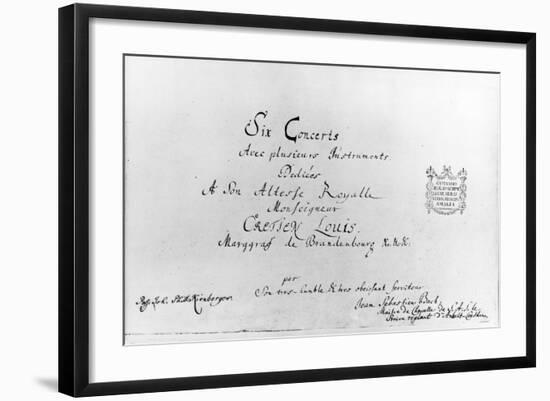 Six Concerts
Avec plusieurs Instruments.
Dediées
A Son Altesse Royalle
Monseigneur
CRETIEN LOUIS.
Marggraf de Brandenbourg &c. &c. &c.
par
Son tres-humble & tres obeissant serviteur
Jean Sebastien Bach
Maitre de Chapelle de S. A. S. le
Prince regnant d'Anhalt-Coethen.